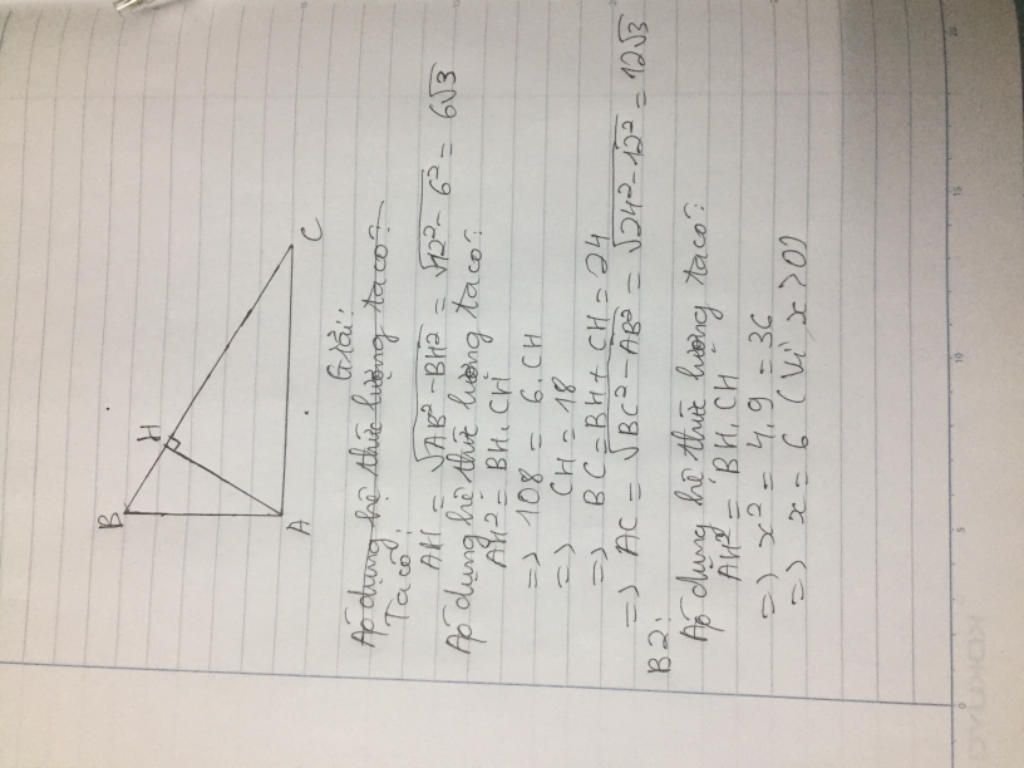 B
H
A
C
Giải:
Áp dụng hệ thức lượng ta có:
Ta có:
AH = √AB² - BH² = √12² - 6² = 6√3
Áp dụng hệ thức lượng ta có:
AH² = BH. CH
=> 108 = 6. CH
=> CH = 18
=> BC = BH + CH = 24
=> AC = √BC² - AB² = √24² - 12² = 12√3
B2:
Áp dụng hệ thức lượng ta có:
AH² = BH. CH
=> x² = 4.9 = 36
=> x = 6 (vì x > 0)
0
5
10
15
20